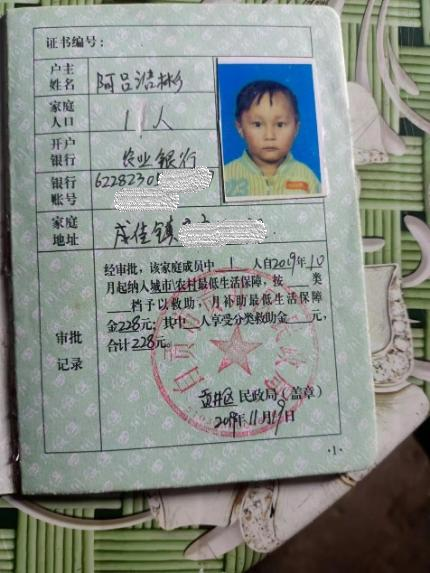 证书编号：
户主姓名 阿吕浩彬
家庭人口 1人
开户银行 农业银行
银行账号 62282305
家庭地址 成佳镇
经审批，该家庭成员中 1 人自2019年10
月起纳入城市/农村最低生活保障，按 类
档予以救助，月补助最低生活保障
金228元；其中 人享受分类救助金 元，
合计228元。
审批记录
民政局（盖章）
2019年11月19日
·1·